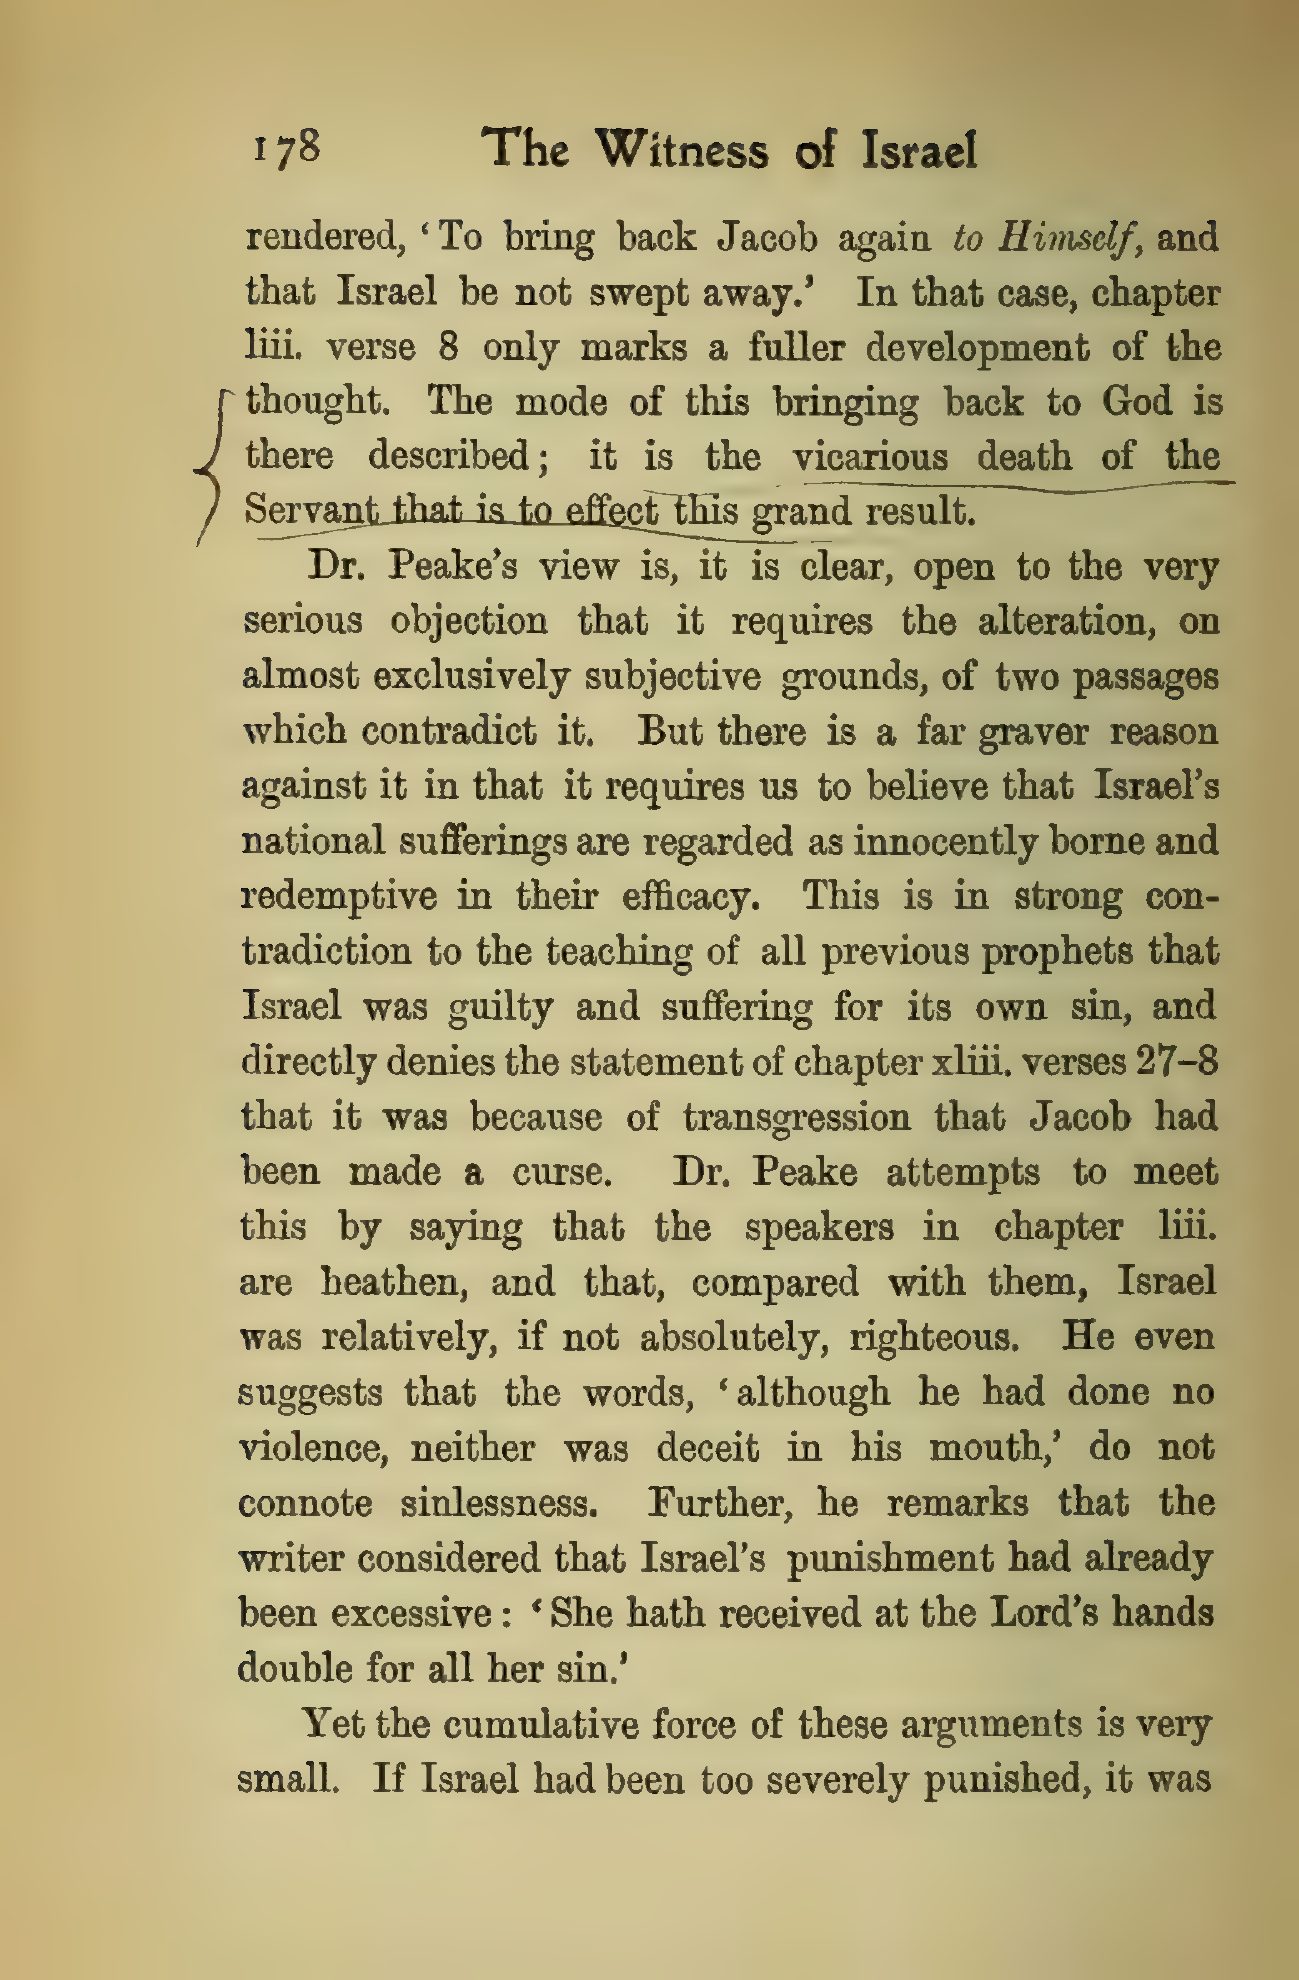 178 The Witness of Israel
rendered, ‘To bring back Jacob again to Himself, and
that Israel be not swept away.’ In that case, chapter
liii. verse 8 only marks a fuller development of the
thought. The mode of this bringing back to God is
there described; it is the vicarious death of the
Servant that is to effect this grand result.
Dr. Peake’s view is, it is clear, open to the very
serious objection that it requires the alteration, on
almost exclusively subjective grounds, of two passages
which contradict it. But there is a far graver reason
against it in that it requires us to believe that Israel’s
national sufferings are regarded as innocently borne and
redemptive in their efficacy. This is in strong con-
tradiction to the teaching of all previous prophets that
Israel was guilty and suffering for its own sin, and
directly denies the statement of chapter xliii. verses 27–8
that it was because of transgression that Jacob had
been made a curse. Dr. Peake attempts to meet
this by saying that the speakers in chapter liii.
are heathen, and that, compared with them, Israel
was relatively, if not absolutely, righteous. He even
suggests that the words, ‘although he had done no
violence, neither was deceit in his mouth,’ do not
connote sinlessness. Further, he remarks that the
writer considered that Israel’s punishment had already
been excessive: ‘She hath received at the Lord’s hands
double for all her sin.’
Yet the cumulative force of these arguments is very
small. If Israel had been too severely punished, it was